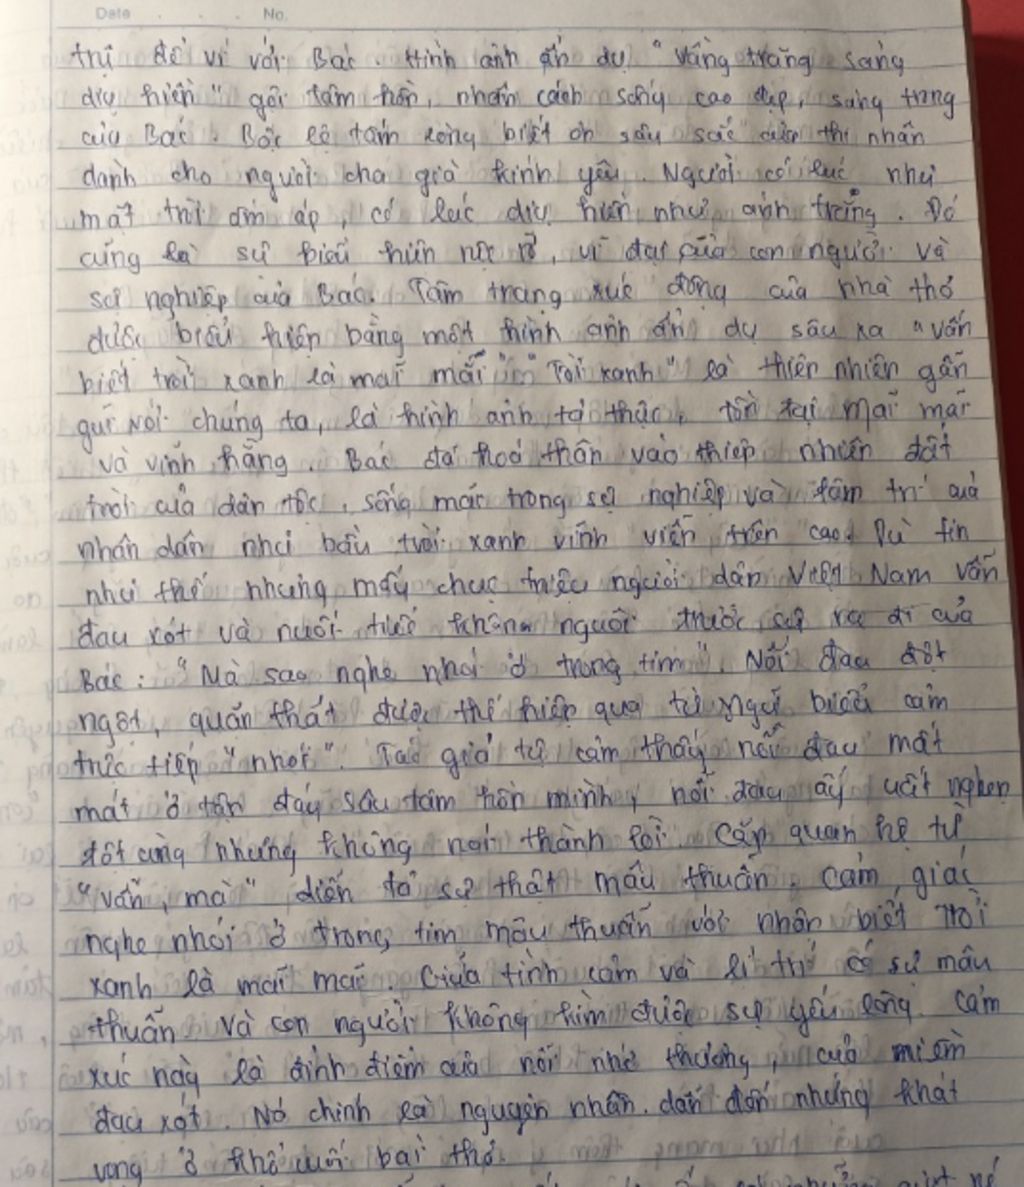 Date No.
trụ để ví với Bác. Hình ảnh ẩn dụ "vầng trăng sáng
dịu hiền" gợi tâm hồn, nhân cách sống cao đẹp, sáng trong
của Bác. Bộc lộ tấm lòng biết ơn sâu sắc của thi nhân
dành cho người cha già kính yêu. Người có lúc như
mặt trời ấm áp, có lúc dịu hiền như ánh trăng. Đó
cũng là sự biểu hiện rực rỡ, vĩ đại của con người và
sự nghiệp của Bác. Tâm trạng xúc động của nhà thơ
được biểu hiện bằng một hình ảnh ẩn dụ sâu xa "vẫn
biết trời xanh là mãi mãi" "Trời xanh" là thiên nhiên gần
gũi với chúng ta, là hình ảnh tả thực, tồn tại mãi mãi
và vĩnh hằng. Bác đã hoá thân vào thiên nhiên đất
trời của dân tộc, sống mãi trong sự nghiệp và tâm trí của
nhân dân như bầu trời xanh vĩnh viễn trên cao. Dù tin
như thế nhưng mấy chục triệu người dân Việt Nam vẫn
đau xót và nuối tiếc khôn nguôi trước sự ra đi của
Bác: "Mà sao nghe nhói ở trong tim". Nỗi đau đột
ngột, quặn thắt được thể hiện qua từ ngữ biểu cảm
trực tiếp "nhói". Tác giả tự cảm thấy nỗi đau mất
mát ở tận đáy sâu tâm hồn mình, nỗi đau ấy uất nghẹn
tột cùng nhưng không nói thành lời. Cặp quan hệ từ
"vẫn, mà" diễn tả sự thật mâu thuẫn. Cảm giác
nghe nhói ở trong tim mâu thuẫn với nhận biết trời
xanh là mãi mãi. Giữa tình cảm và lí trí có sự mâu
thuẫn. Và con người không kìm được sự yếu lòng. Cảm
xúc này là đỉnh điểm của nỗi nhớ thương, của niềm
đau xót. Nó chính là nguyên nhân dẫn đến những khát
vọng ở khổ cuối bài thơ.